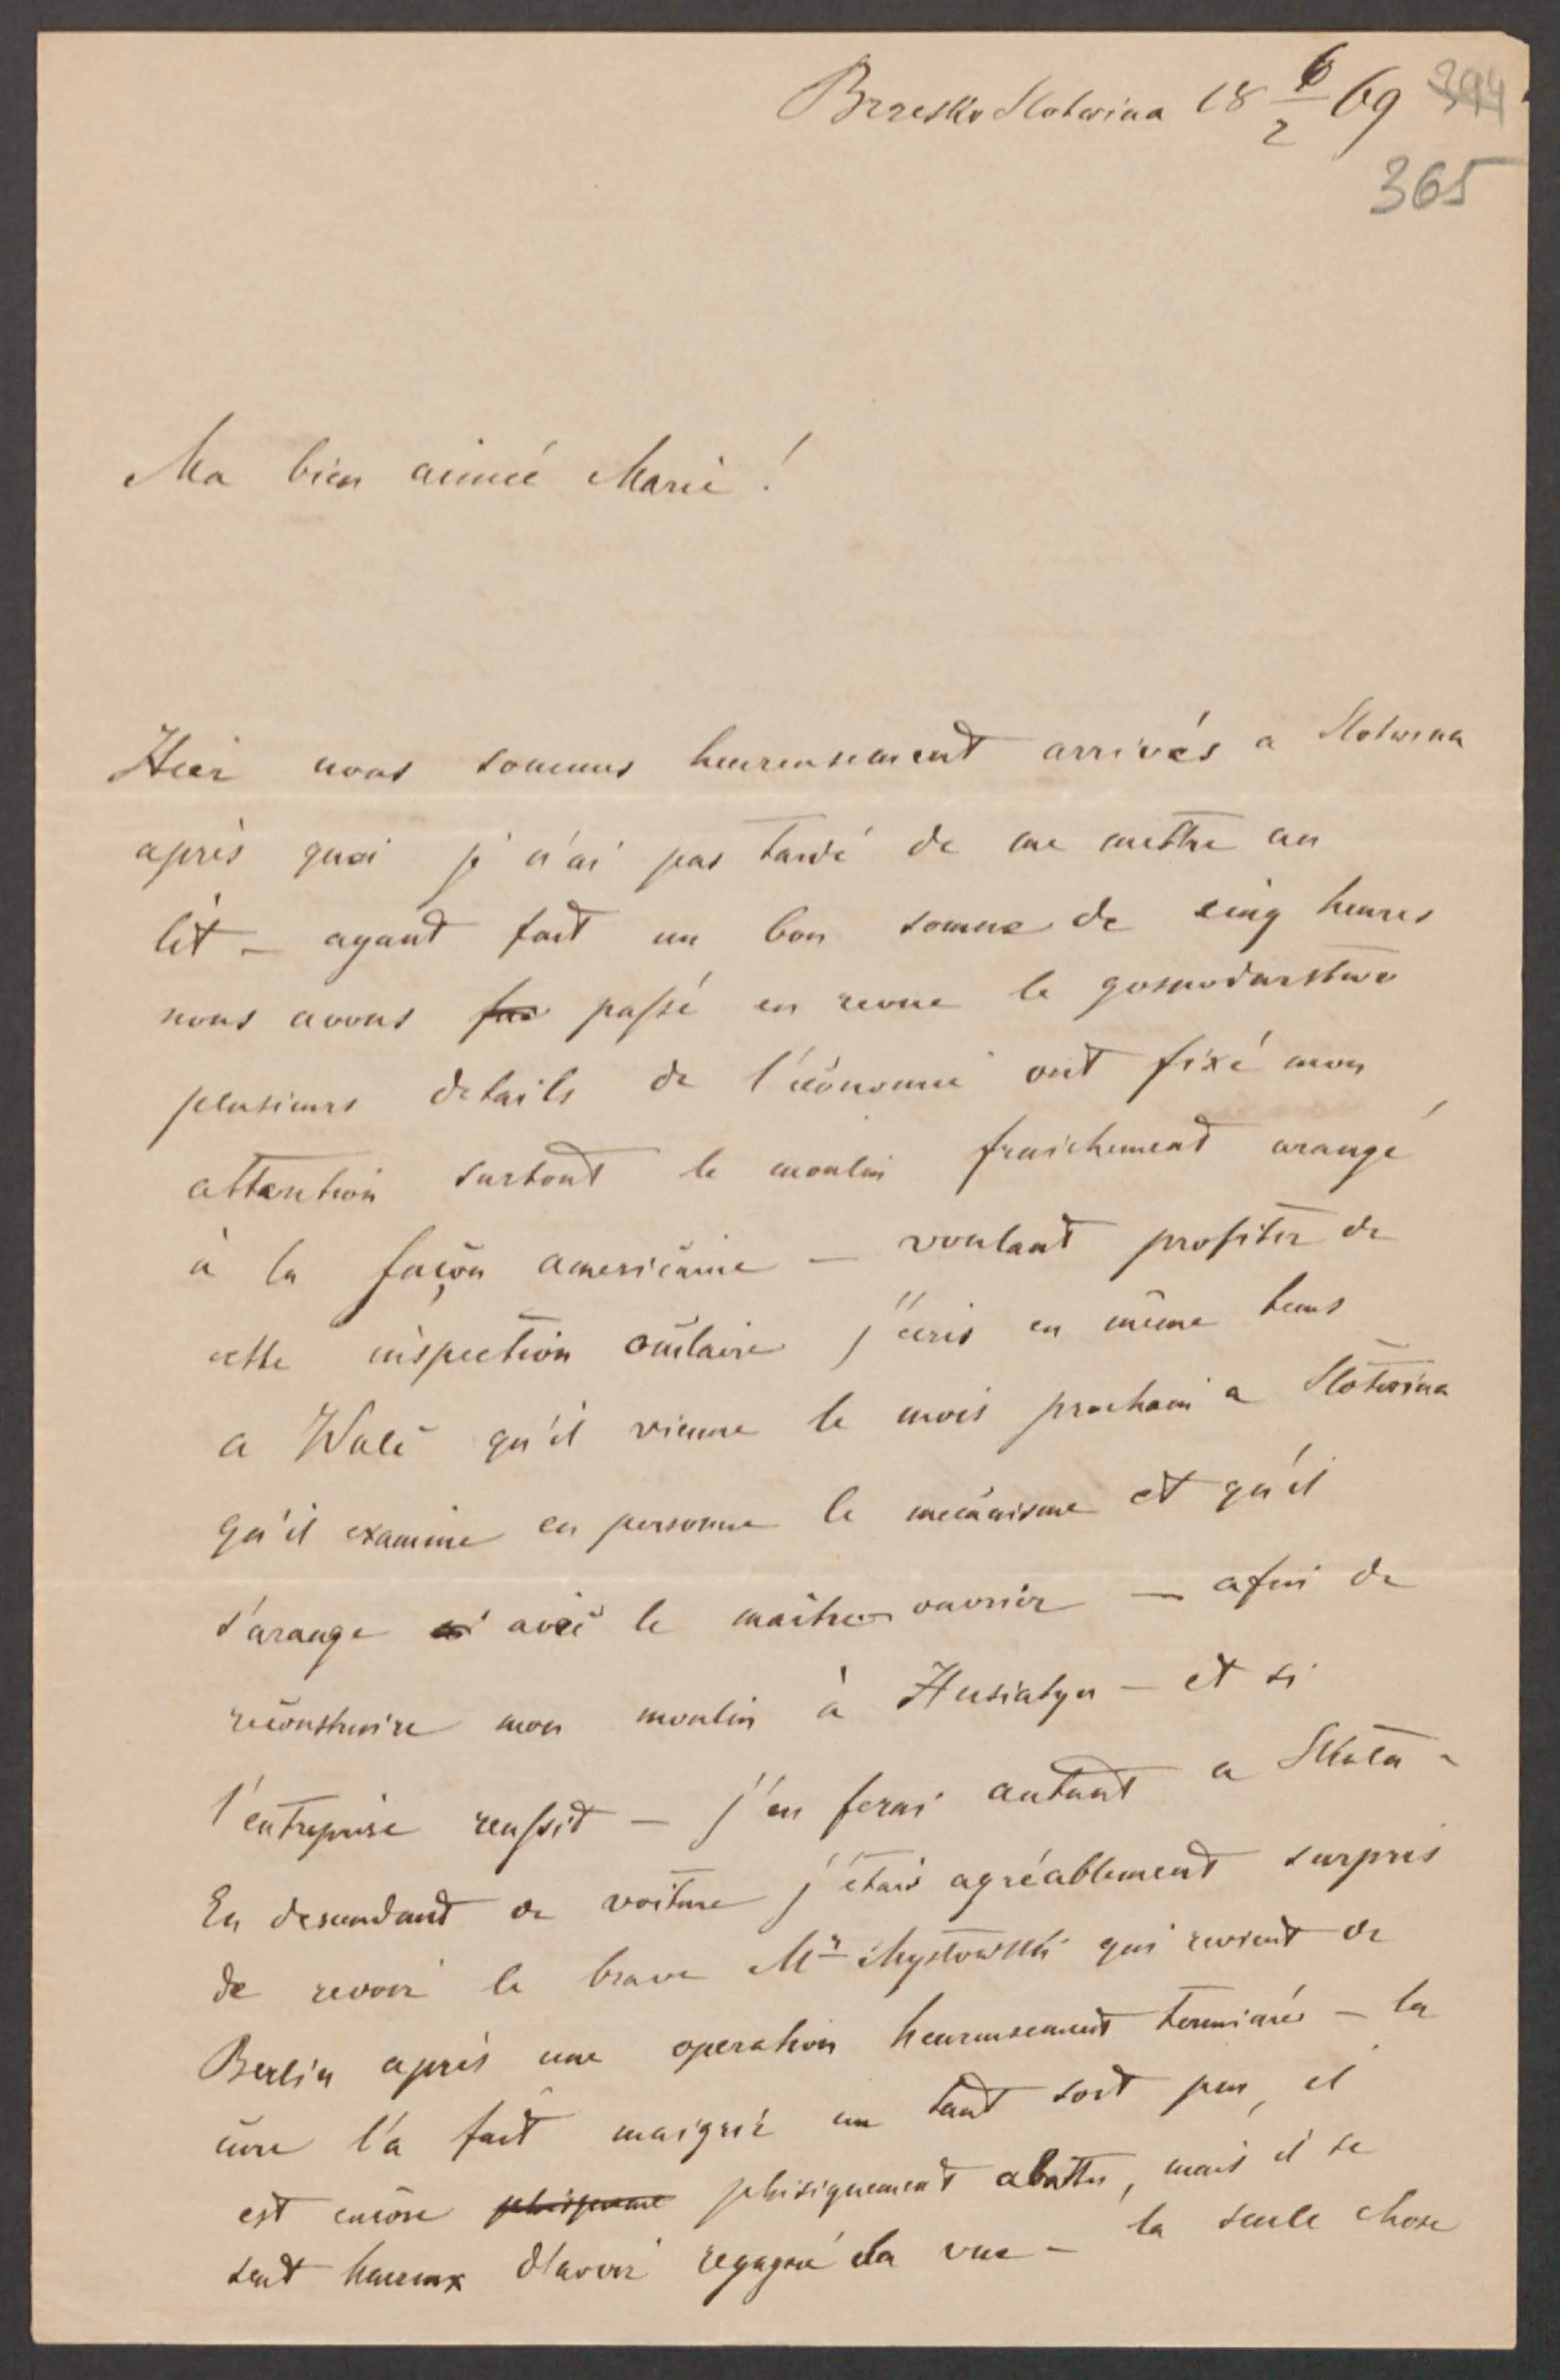 Brzesko Slotwina 18 6/2 69 394
365
Ma bien aimeé Marie!
Hier nous sommes heureusement arrivés a Slotwina
après quoi je n'ai pas tardé de me mettre au
lit – ayant fait un bon somme de cinq heures
nous avons passé en revue le gospodarstwo
plusieurs details de l'économie ont fixé mon
attention surtout le moulin fraichement arangé
à la façon americaine – voulant profiter de
cette inspection oculaire j'écris en même tems
a Walć qu'il vienne le mois prochain a Slotwina
qu'il examine en personne le mecanisme et qu'il
s'arange avec le maître ouvrier – afin de
reconstruire mon moulin à Husiatyn – et si
l'entreprise reussit – j'en ferai autant a Skała –
En descendant de voiture j'étais agréablement surpris
de revoir le brave Mr Mysłowski qui revient de
Berlin après une operation heureusement terminée – la
cure l'a fait maigrir un tant soit peu, il
est encore phisiquement abattu, mais il se
sent heureux d'avoir regagné la vue – la seule chose